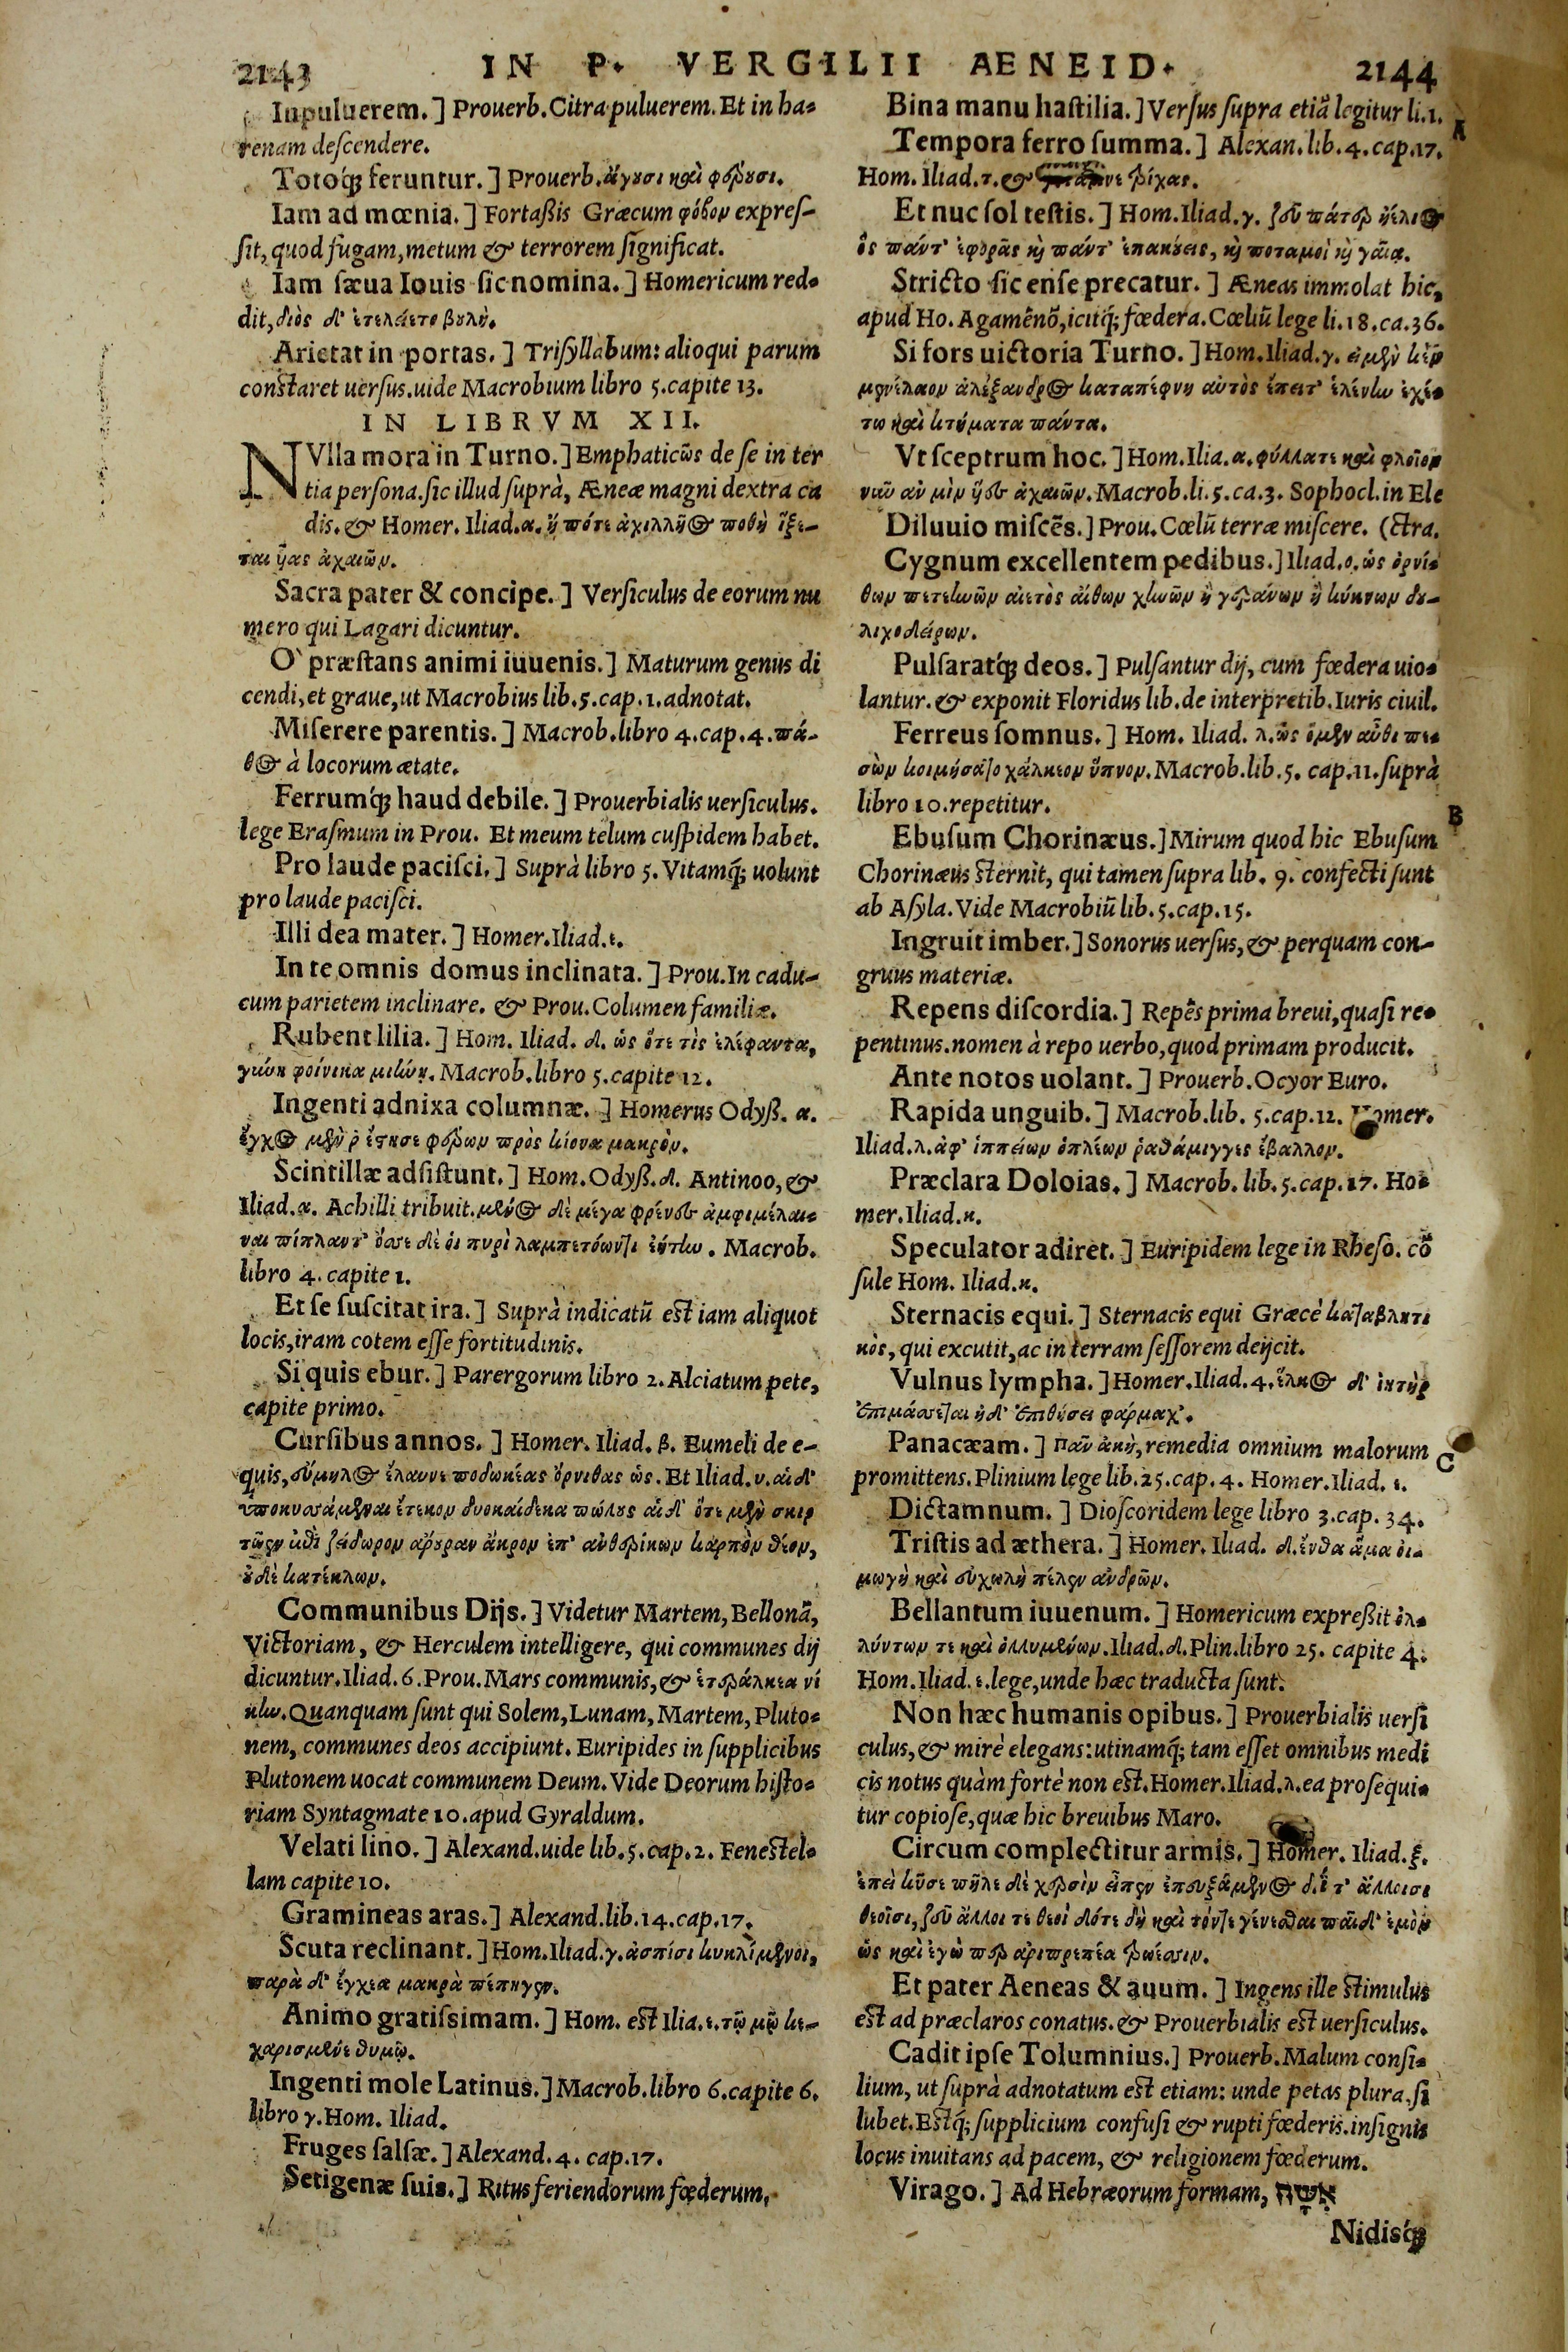 2143 IN P. VERGILII AENEID. 2144
In puluerem.] Prouerb. Citra puluerem. Et in ha-
renam descendere.
Totoq́; feruntur.] Prouerb. ἄγουσι καὶ φέρουσι.
Iam ad mœnia.] Fortaßis Græcum φόβον expres-
sit, quod fugam, metum & terrorem significat.
Iam sæua Iouis sic nomina.] Homericum red-
dit, διὸς δ' ἐτελείετο βουλή.
Arietat in portas.] Trisyllabum: alioqui parum
constaret uersus. uide Macrobium libro 5. capite 13.
IN LIBRVM XII.
NVlla mora in Turno.] Emphaticῶs de se in ter
tia persona. sic illud suprà, Æneæ magni dextra ca
dis. & Homer. Iliad. α. ἤ πότε ἀχιλλῆος ποθὴ ἵξε-
ται ἧας ἀχαιῶν.
Sacra pater & concipe.] Versiculus de eorum nu
mero qui Lagari dicuntur.
O` præstans animi iuuenis.] Maturum genus di
cendi, et graue, ut Macrobius lib. 5. cap. 1. adnotat.
Miserere parentis.] Macrob. libro 4. cap. 4. πά-
θος à locorum ætate.
Ferrumq́; haud debile.] Prouerbialis uersiculus.
lege Erasmum in Prou. Et meum telum cuspidem habet.
Pro laude pacisci.] Suprà libro 5. Vitamq́; uolunt
pro laude pacisci.
Illi dea mater.] Homer. Iliad. ε.
In te omnis domus inclinata.] Prou. In cadu-
cum parietem inclinare. & Prou. Columen familiæ.
Rubent lilia.] Hom. Iliad. δ. ὡς ὅτε τὶς ἐλέφαντα,
γυνὴ φοίνικα μιήνη. Macrob. libro 5. capite 12.
Ingenti adnixa columnæ.] Homerus Odyß. α.
ἔγχος μὲν ῥ ἔστησε φέρων πρὸς κίονα μακρὸν.
Scintillæ adsistunt.] Hom. Odyß. δ. Antinoo, &
Iliad. α. Achilli tribuit. μένος δὲ μέγα φρένες ἀμφιμέλαι-
ναι πίπλαντ' ὄσσε δὲ οἱ πυρὶ λαμπετόωντι ἐΐκτην. Macrob.
libro 4. capite 1.
Et se suscitat ira.] Suprà indicatũ est iam aliquot
locis, iram cotem esse fortitudinis.
Si quis ebur.] Parergorum libro 2. Alciatum pete,
capite primo.
Cursibus annos.] Homer. Iliad. β. Eumeli de e-
quis, εὔμηλος ἔλαυνε ποδωκέας ὄρνιθας ὡς. Et Iliad. υ. αἱ δ'
ὑποκυσσάμεναι ἔτεκον δυοκαίδεκα πώλους αἱ δ' ὅτε μὲν σκιρ
τῷεν ἐπὶ ζείδωρον ἄρουραν ἄκρον ἐπ' ἀνθερίκων καρπὸν θέον,
οὐδὲ κατέκλων.
Communibus Dijs.] Videtur Martem, Bellonã,
Victoriam, & Herculem intelligere, qui communes dij
dicuntur. Iliad. 6. Prou. Mars communis, & ἑτεράλκεα νί
κην. Quanquam sunt qui Solem, Lunam, Martem, Pluto-
nem, communes deos accipiunt. Euripides in supplicibus
Plutonem uocat communem Deum. Vide Deorum histo-
riam Syntagmate 10. apud Gyraldum.
Velati lino.] Alexand. uide lib. 5. cap. 2. Fenestel-
lam capite 10.
Gramineas aras.] Alexand. lib. 14. cap. 17.
Scuta reclinant.] Hom. Iliad. γ. ἀσπίσι κεκλίμενοι,
παρὰ δ' ἔγχεα μακρὰ πέπηγεν.
Animo gratissimam.] Hom. est Ilia. ε. τῷ μῷ κε-
χαρισμένε θυμῷ.
Ingenti mole Latinus.] Macrob. libro 6. capite 6.
libro γ. Hom. Iliad.
Fruges salsæ.] Alexand. 4. cap. 17.
Setigenæ suis.] Ritus feriendorum fœderum,
Bina manu hastilia.] Versus supra etiã legitur li. 1.
A
Tempora ferro summa.] Alexan. lib. 4. cap. 17.
Hom. Iliad. τ. & τρίχας.
Et nuc sol testis.] Hom. Iliad. γ. ζεῦ πάτερ ἠέλιος
ὃς πάντ' ἐφορᾶς καὶ πάντ' ἐπακούεις, καὶ ποταμοὶ καὶ γαῖα.
Stricto sic ense precatur.] Æneas immolat hic,
apud Ho. Agamẽnõ, icitq́; fœdera. Cœliũ lege li. 18. ca. 36.
Si fors uictoria Turno.] Hom. Iliad. γ. εἰ μὲν κὲν
μενέλαον ἀλέξανδρος καταπέφνη αὐτὸς ἔπειτ' ἑλένην ἐχέ-
τω καὶ κτήματα πάντα.
Vt sceptrum hoc.] Hom. Ilia. α. φύλλατε καὶ φλοῖον
νῦν αὖ μὶν ἧες ἀχαιῶν. Macrob. li. 5. ca. 3. Sophocl. in Ele
Diluuio miscẽs.] Prou. Cœlũ terræ miscere. (ctra.
Cygnum excellentem pedibus.] Iliad. ο. ὡς ὀρνί-
θων πετεηνῶν αἰετὸς αἴθων χηνῶν ἢ γεράνων ἢ κύκνων δου-
λιχοδείρων.
Pulsaratq́; deos.] Pulsantur dij, cum fœdera uio-
lantur. & exponit Floridus lib. de interpretib. Iuris ciuil.
Ferreus somnus.] Hom. Iliad. λ. ὡς ὁ μὲν αὖθι πε-
σὼν κοιμήσατο χάλκεον ὕπνον. Macrob. lib. 5. cap. 11. suprà
libro 10. repetitur.
B
Ebusum Chorinæus.] Mirum quod hic Ebusum
Chorinæus sternit, qui tamen supra lib. 9. confecti sunt
ab Asyla. Vide Macrobiũ lib. 5. cap. 15.
Ingruit imber.] Sonorus uersus, & perquam con-
gruus materiæ.
Repens discordia.] Repẽs prima breui, quasi re-
pentinus. nomen à repo uerbo, quod primam producit.
Ante notos uolant.] Prouerb. Ocyor Euro.
Rapida unguib.] Macrob. lib. 5. cap. 12. Homer.
Iliad. λ. ἀφ' ἱππείων ὁπλέων ῥαθάμιγγες ἔβαλλον.
Præclara Doloias.] Macrob. lib. 5. cap. 17. Ho-
mer. Iliad. κ.
Speculator adiret.] Euripidem lege in Rheso. cõ
sule Hom. Iliad. κ.
Sternacis equi.] Sternacis equi Græcè καταβλητι
κὸς, qui excutit, ac in terram sessorem deijcit.
Vulnus lympha.] Homer. Iliad. 4. ἕλκος δ' ἰητὴρ
ἐπιμάσσεται ἠδ' ἐπιθήσει φάρμαχ'.
Panacæam.] Παν ἀκὴ, remedia omnium malorum
C
promittens. Plinium lege lib. 25. cap. 4. Homer. Iliad. ε.
Dictamnum.] Dioscoridem lege libro 3. cap. 34.
Tristis ad æthera.] Homer. Iliad. δ. ἔνθα ἅμα οἰ-
μωγὴ καὶ εὐχωλὴ πέλεν ἀνδρῶν.
Bellantum iuuenum.] Homericum expreßit ὀλ-
λύντων τε καὶ ὀλλυμένων. Iliad. δ. Plin. libro 25. capite 4.
Hom. Iliad. ε. lege, unde hæc traducta sunt.
Non hæc humanis opibus.] Prouerbialis uersi
culus, & mirè elegans: utinamq́; tam esset omnibus medi
cis notus quàm fortè non est. Homer. Iliad. λ. ea prosequi-
tur copiose, quæ hic breuibus Maro.
Circum complectitur armis.] Homer. Iliad. ξ.
ἐπεὶ κῦσε πῆλε δὲ χερσὶν εἶπεν ἐπευξάμενος δ. ῒ τ' ἄλλοισι
θεοῖσι, ζεῦ ἄλλοι τε θεοὶ δότε δὴ καὶ τόνδε γένεσθαι παῖδ' ἐμὸν
ὡς καὶ ἐγὼ περ ἀριπρεπέα τρώεσσιν.
Et pater Aeneas & auum.] Ingens ille stimulus
est ad præclaros conatus. & Prouerbialis est uersiculus.
Cadit ipse Tolumnius.] Prouerb. Malum consi-
lium, ut suprà adnotatum est etiam: unde petas plura. si
lubet. Estq́; supplicium confusi & rupti fœderis. insignis
locus inuitans ad pacem, & religionem fœderum.
Virago.] Ad Hebræorum formam, אִשָּׁה
Nidisq́;